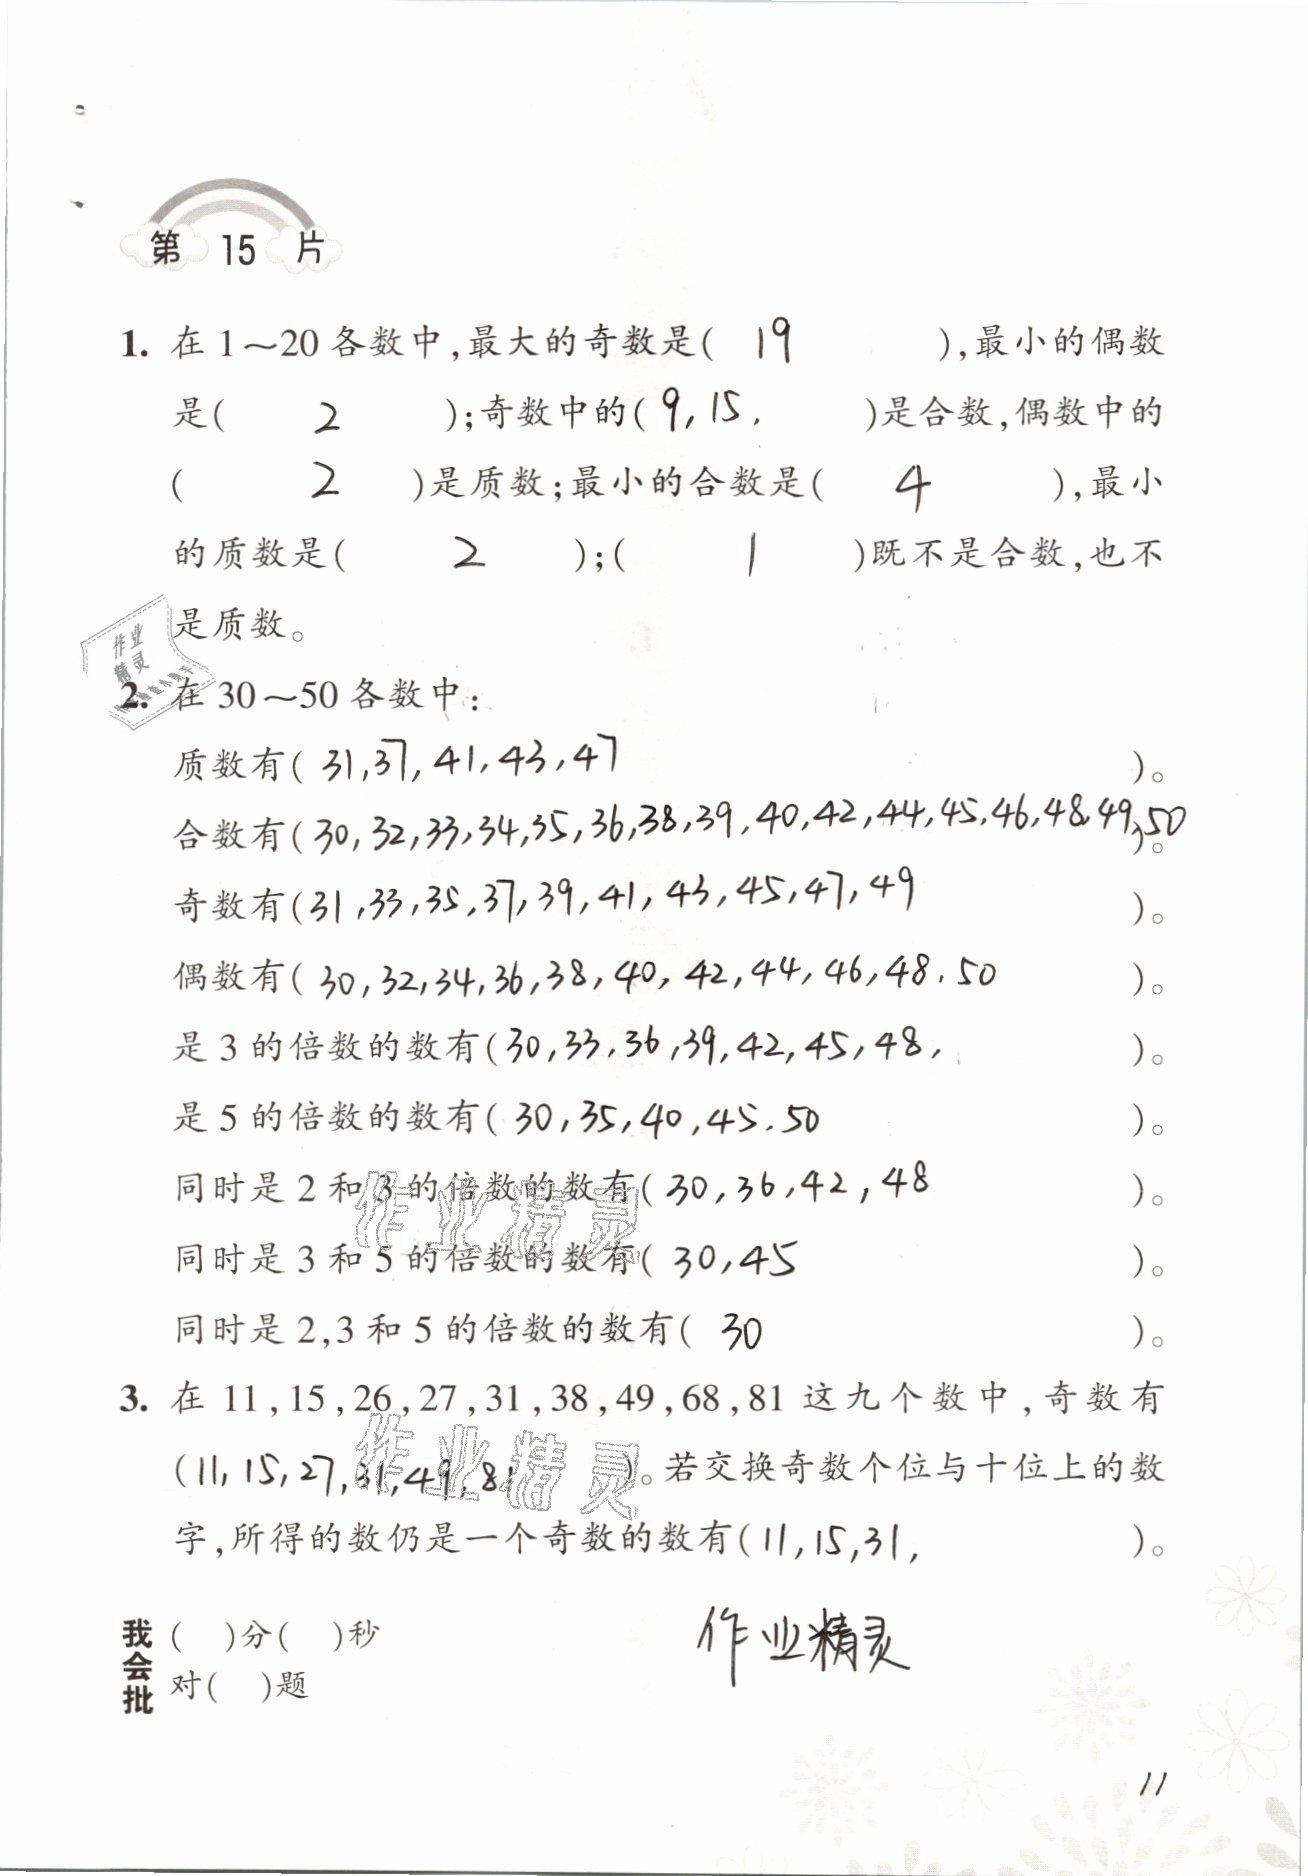 第 15 片
1. 在 1～20 各数中,最大的奇数是( 19 ),最小的偶数
是( 2 );奇数中的( 9,15. )是合数,偶数中的
( 2 )是质数;最小的合数是( 4 ),最小
的质数是( 2 );( 1 )既不是合数,也不
是质数。
作业
精灵
2. 在 30～50 各数中:
质数有( 31,37,41,43,47 )。
合数有( 30,32,33,34,35,36,38,39,40,42,44,45,46,48,49,50 )。
奇数有( 31,33,35,37,39,41,43,45,47,49 )。
偶数有( 30,32,34,36,38,40,42,44,46,48.50 )。
是 3 的倍数的数有( 30,33,36,39,42,45,48, )。
是 5 的倍数的数有( 30,35,40,45.50 )。
同时是 2 和 3 的倍数的数有( 30,36,42,48 )。
作业精灵
同时是 3 和 5 的倍数的数有( 30,45 )。
同时是 2,3 和 5 的倍数的数有( 30 )。
3. 在 11,15,26,27,31,38,49,68,81 这九个数中,奇数有
作业精灵
( 11,15,27,31,49,81 )。若交换奇数个位与十位上的数
字,所得的数仍是一个奇数的数有( 11,15,31, )。
我会批
( )分( )秒
对( )题
作业精灵
11